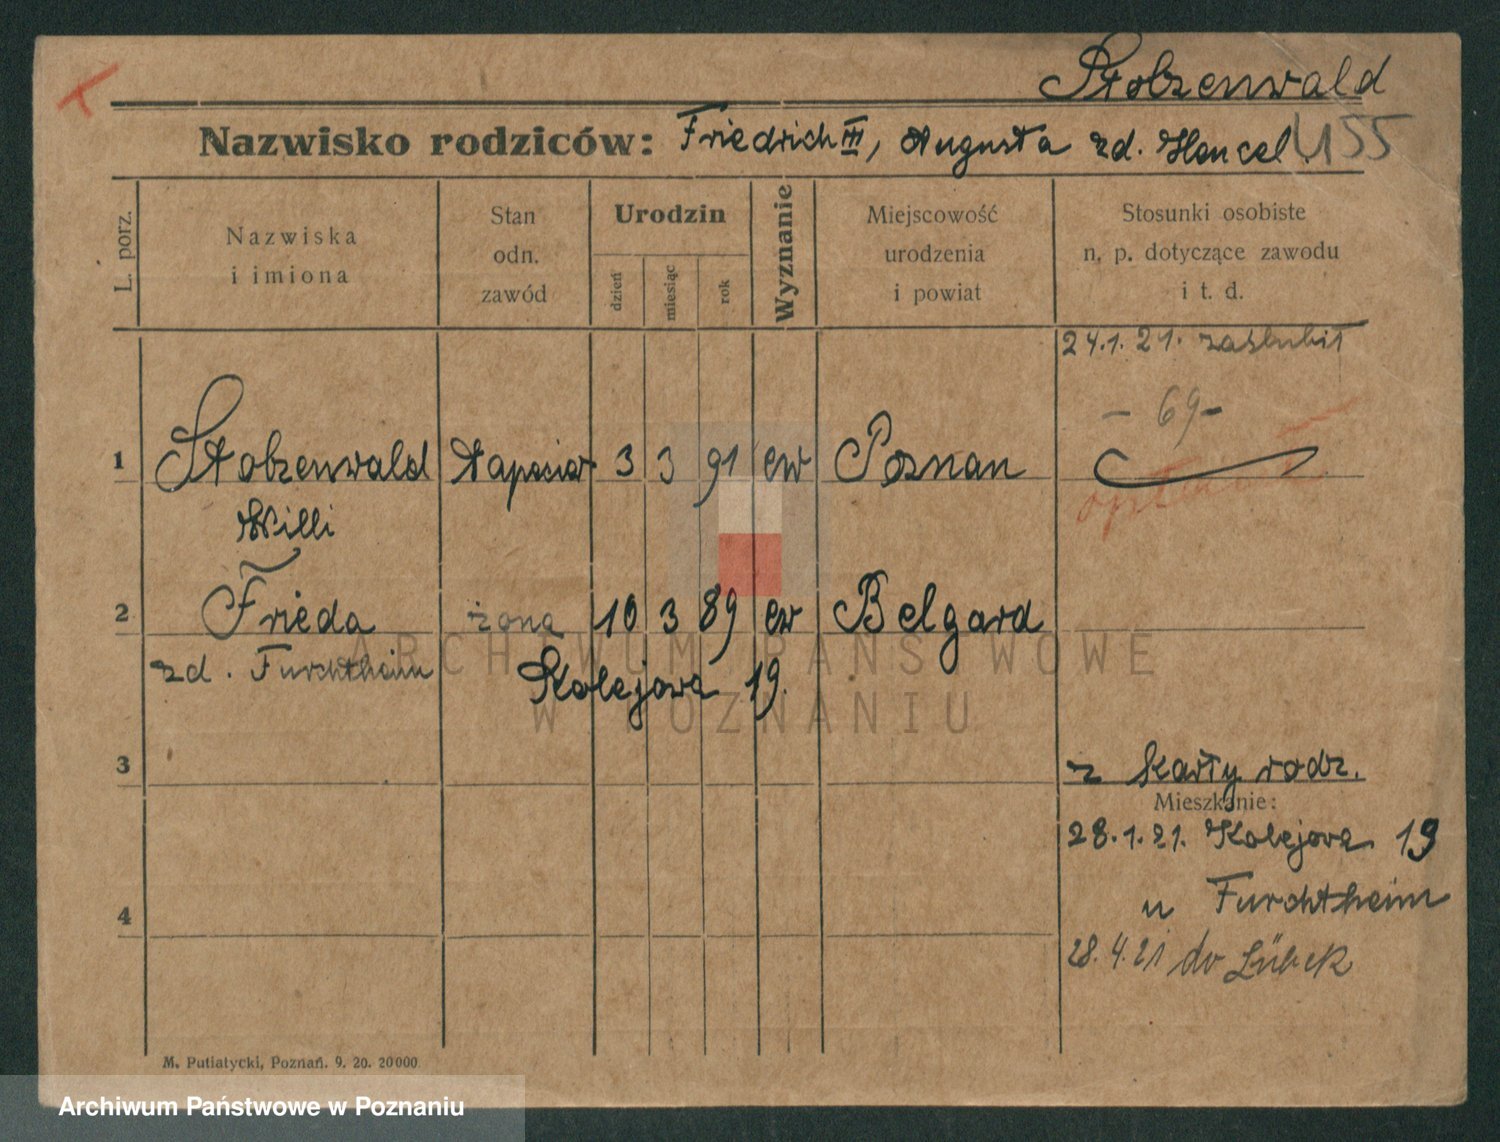 Stolzenwald
Nazwisko rodziców: Friedrich III, Augusta zd. Hencel.
U55
L. porz.
Nazwiska i imiona
Stan odn. zawód
Urodzin
dzień
miesiąc
rok
Wyznanie
Miejscowość urodzenia i powiat
Stosunki osobiste n. p. dotyczące zawodu i t. d.
24.1.21. zaślubił
- 69 -
1 Stolzenwald tapecier 3 3 91 ew Poznan
Willi
2 Frieda żona 10 3 89 ew Belgard
zd. Furchtheim Kolejowa 19.
ARCHIWUM PAŃSTWOWE
W POZNANIU
3 z karty rodz.
Mieszkanie:
28.1.21. Kolejowa 19
u Furchtheim
4
28.4.21 do Lübek
M. Putiatycki, Poznań. 9. 20. 20000
Archiwum Państwowe w Poznaniu